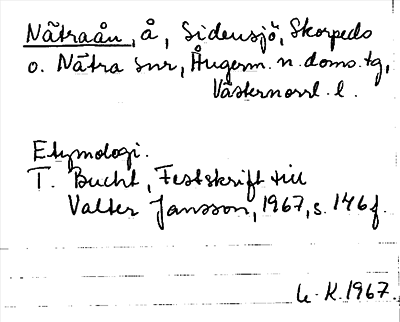 Nätraån, å, Sidensjö, Skorpeds
o. Nätra snr, Ångerm. n. doms. tg,
Västernorrl. l.
Etymologi.
T. Bucht, Festskrift till
Valter Jansson, 1967, s. 146 f.
K. 1967.